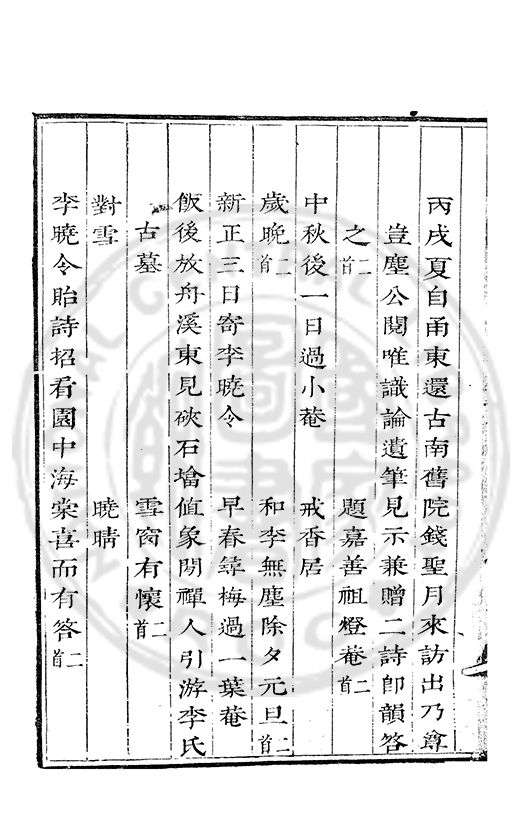 丙戌夏自甬東還古南舊院錢聖月來訪出乃尊
豈塵公閱唯識論遺筆見示兼贈二詩即韻答
之二首　題嘉善祖燈菴二首
中秋後一日過小菴　戒香居
歲晚二首　和李無塵除夕元旦二首
新正三日寄李曉令　早春尋梅過一葉菴
飯後放舟溪東見硤石墖值象閒禪人引游李氏
古墓　雪窗有懷二首
對雪　曉晴
李曉令貽詩招看園中海棠喜而有答二首